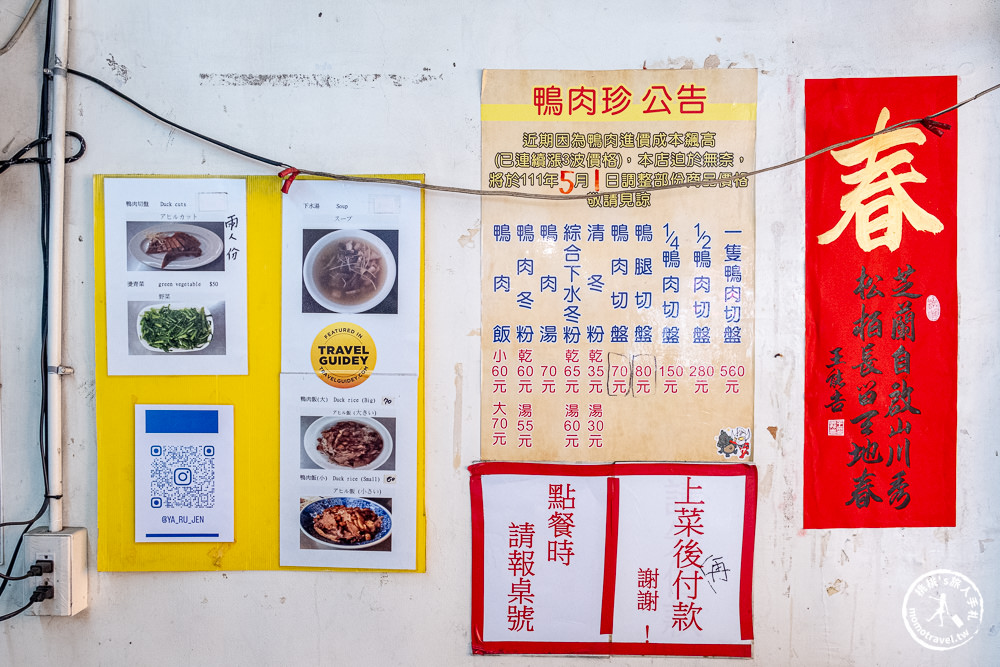 鴨肉切盤 Duck cuts
アヒルカット
兩人份
燙青菜 green vegetable $50
野菜
下水湯 Soup
スープ
FEATURED IN
TRAVEL
GUIDEY
TRAVELGUIDEY.COM
鴨肉飯(大) Duck rice (Big) 70
アヒル飯(大きい)
鴨肉飯(小) Duck rice (Small) 60
アヒル飯(小さい)
@YA_RU_JEN
鴨肉珍 公告
近期因為鴨肉進價成本飆高
(已連續漲3波價格)，本店迫於無奈，
將於111年5月1日調整部份商品價格
敬請見諒
一隻鴨肉切盤 560元
1/2鴨肉切盤 280元
1/4鴨肉切盤 150元
鴨腿切盤 80元
鴨肉切盤 70元
清冬粉 乾35元 湯30元
綜合下水冬粉 乾65元 湯60元
鴨肉湯 70元
鴨肉冬粉 乾60元 湯55元
鴨肉飯 小60元 大70元
上菜後再付款
謝謝！
點餐時
請報桌號
春
芝蘭自啟山川秀
松柏長留天地春
momotravel.tw